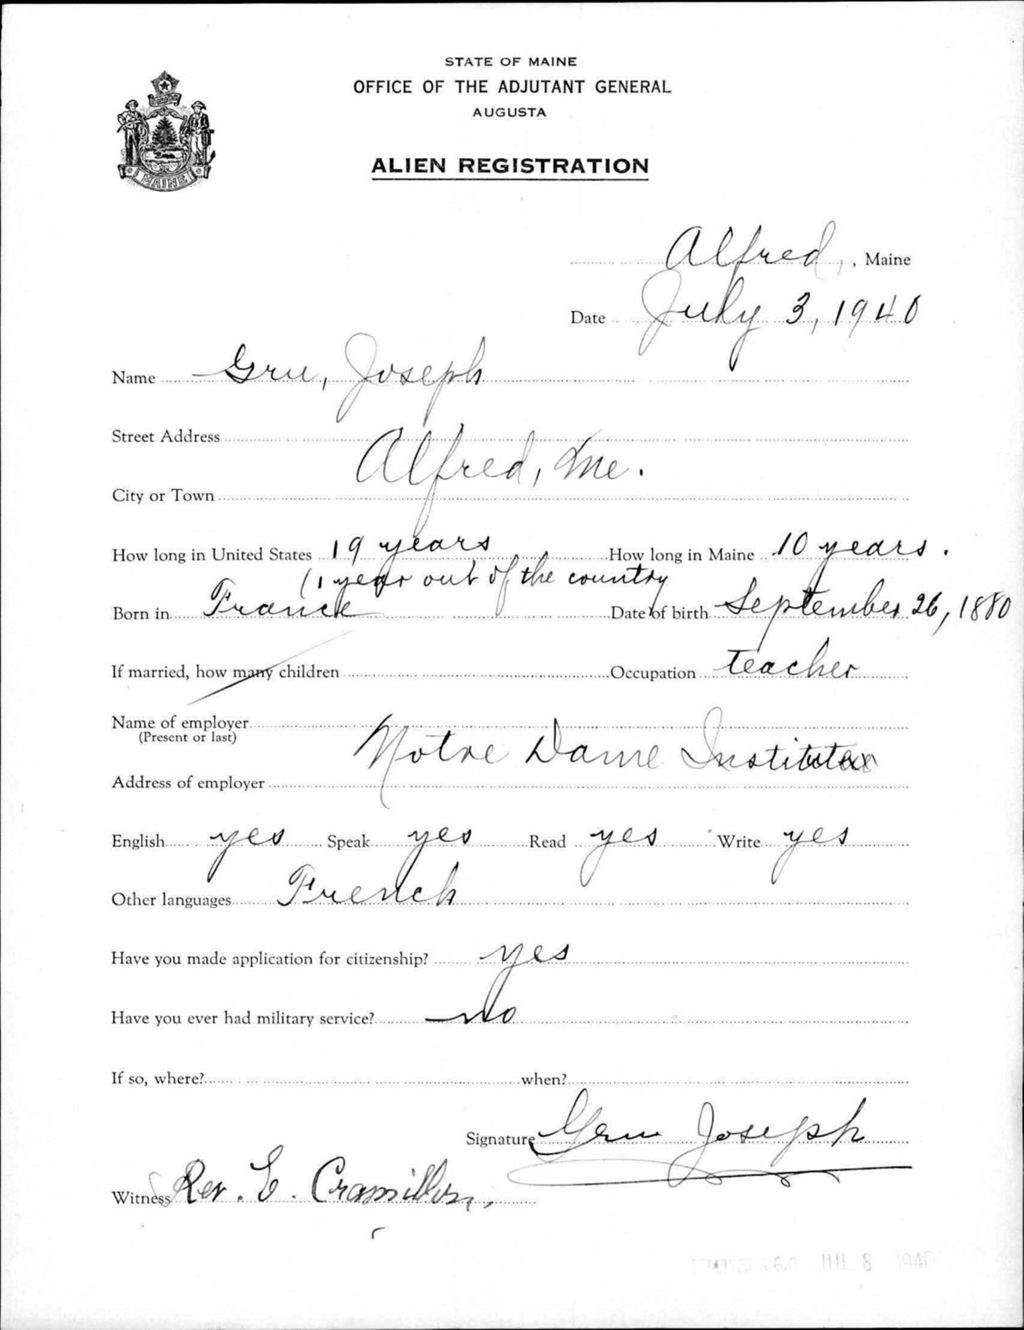 STATE OF MAINE
OFFICE OF THE ADJUTANT GENERAL
AUGUSTA
ALIEN REGISTRATION
MAINE
Alfred, , Maine
Date July 3, 1940
Name Gru, Joseph
Street Address
Alfred, Me.
City or Town
How long in United States 19 years How long in Maine 10 years.
(1 year out of the country
Born in France Date of birth September 26, 1880
If married, how many children Occupation teacher
Name of employer
(Present or last)
Notre Dame Institute
Address of employer
English yes Speak yes Read yes Write yes
Other languages French
Have you made application for citizenship? yes
Have you ever had military service? no
If so, where? when?
Signature Gru Joseph
Witness Rev. E.
JUL 8 1940